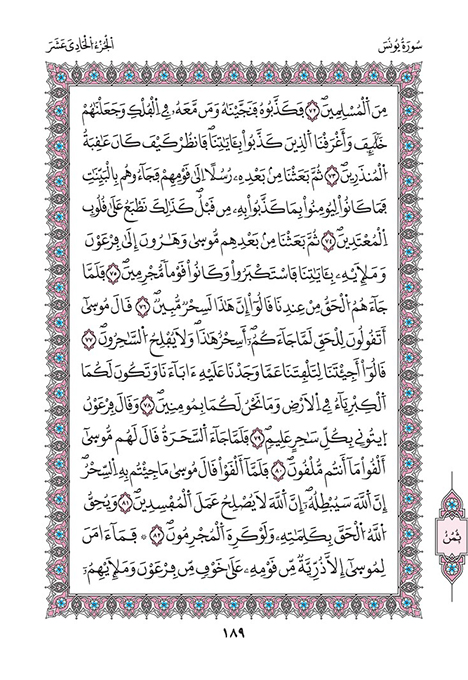 سُورَةُ يُونُسَ
الْجُزْءُ الْحَادِي عَشَرَ
مِنَ اَ۬لْمُسْلِمِينَۖ ٧٢ فَكَذَّبُوهُ فَنَجَّيْنَٰهُ وَمَن مَّعَهُۥ فِے اِ۬لْفُلْكِ وَجَعَلْنَٰهُمْ
خَلَٰٓئِفَ وَأَغْرَقْنَا اَ۬لذِينَ كَذَّبُواْ بِـَٔايَٰتِنَاۖ فَانظُرْ كَيْفَ كَانَ عَٰقِبَةُ
اُ۬لْمُنذَرِينَۖ ٧٣ ثُمَّ بَعَثْنَا مِنۢ بَعْدِهِۦ رُسُلًا اِلَىٰ قَوْمِهِمْ فَجَآءُوهُم بِالْبَيِّنَٰتِ
فَمَا كَانُواْ لِيُومِنُواْ بِمَا كَذَّبُواْ بِهِۦ مِن قَبْلُۖ كَذَٰلِكَ نَطْبَعُ عَلَىٰ قُلُوبِ
اِ۬لْمُعْتَدِينَۖ ٧٤ ثُمَّ بَعَثْنَا مِنۢ بَعْدِهِم مُّوسَىٰ وَهَٰرُونَ إِلَىٰ فِرْعَوْنَ
وَمَلَإِيْهِۦ بِـَٔايَٰتِنَا فَاسْتَكْبَرُواْ وَكَانُواْ قَوْمًا مُّجْرِمِينَۖ ٧٥ فَلَمَّا
جَآءَهُمُ اُ۬لْحَقُّ مِنْ عِندِنَا قَالُوٓاْ إِنَّ هَٰذَا لَسِحْرٌ مُّبِينٌۖ ٧٦ قَالَ مُوسَىٰٓ
أَتَقُولُونَ لِلْحَقِّ لَمَّا جَآءَكُمُۥٓۖ أَسِحْرٌ هَٰذَاۖ وَلَا يُفْلِحُ اُ۬لسَّٰحِرُونَۖ ٧٧
قَالُوٓاْ أَجِئْتَنَا لِتَلْفِتَنَا عَمَّا وَجَدْنَا عَلَيْهِ ءَابَآءَنَا وَتَكُونَ لَكُمَا
اَ۬لْكِبْرِيَآءُ فِے اِ۬لَارْضِ وَمَا نَحْنُ لَكُمَا بِمُومِنِينَۖ ٧٨ وَقَالَ فِرْعَوْنُ
اُ۪يتُونِے بِكُلِّ سَٰحِرٍ عَلِيمٍۖ ٧٩ فَلَمَّا جَآءَ اَ۬لسَّحَرَةُ قَالَ لَهُم مُّوسَىٰٓ
أَلْقُواْ مَآ أَنتُم مُّلْقُونَۖ ٨٠ فَلَمَّآ أَلْقَوْاْ قَالَ مُوسَىٰ مَا جِئْتُم بِهِ اِ۬لسِّحْرُ
إِنَّ اَ۬للَّهَ سَيُبْطِلُهُۥٓۖ إِنَّ اَ۬للَّهَ لَا يُصْلِحُ عَمَلَ اَ۬لْمُفْسِدِينَۖ ٨١ وَيُحِقُّ
اُ۬للَّهُ اُ۬لْحَقَّ بِكَلِمَٰتِهِۦ وَلَوْ كَرِهَ اَ۬لْمُجْرِمُونَۖ ٨٢ ۞ فَمَآ ءَامَنَ
لِمُوسَىٰٓ إِلَّا ذُرِّيَّةٌ مِّن قَوْمِهِۦ عَلَىٰ خَوْفٍ مِّن فِرْعَوْنَ وَمَلَإِيْهِمُۥٓ
ثُمُنُ
١٨٩